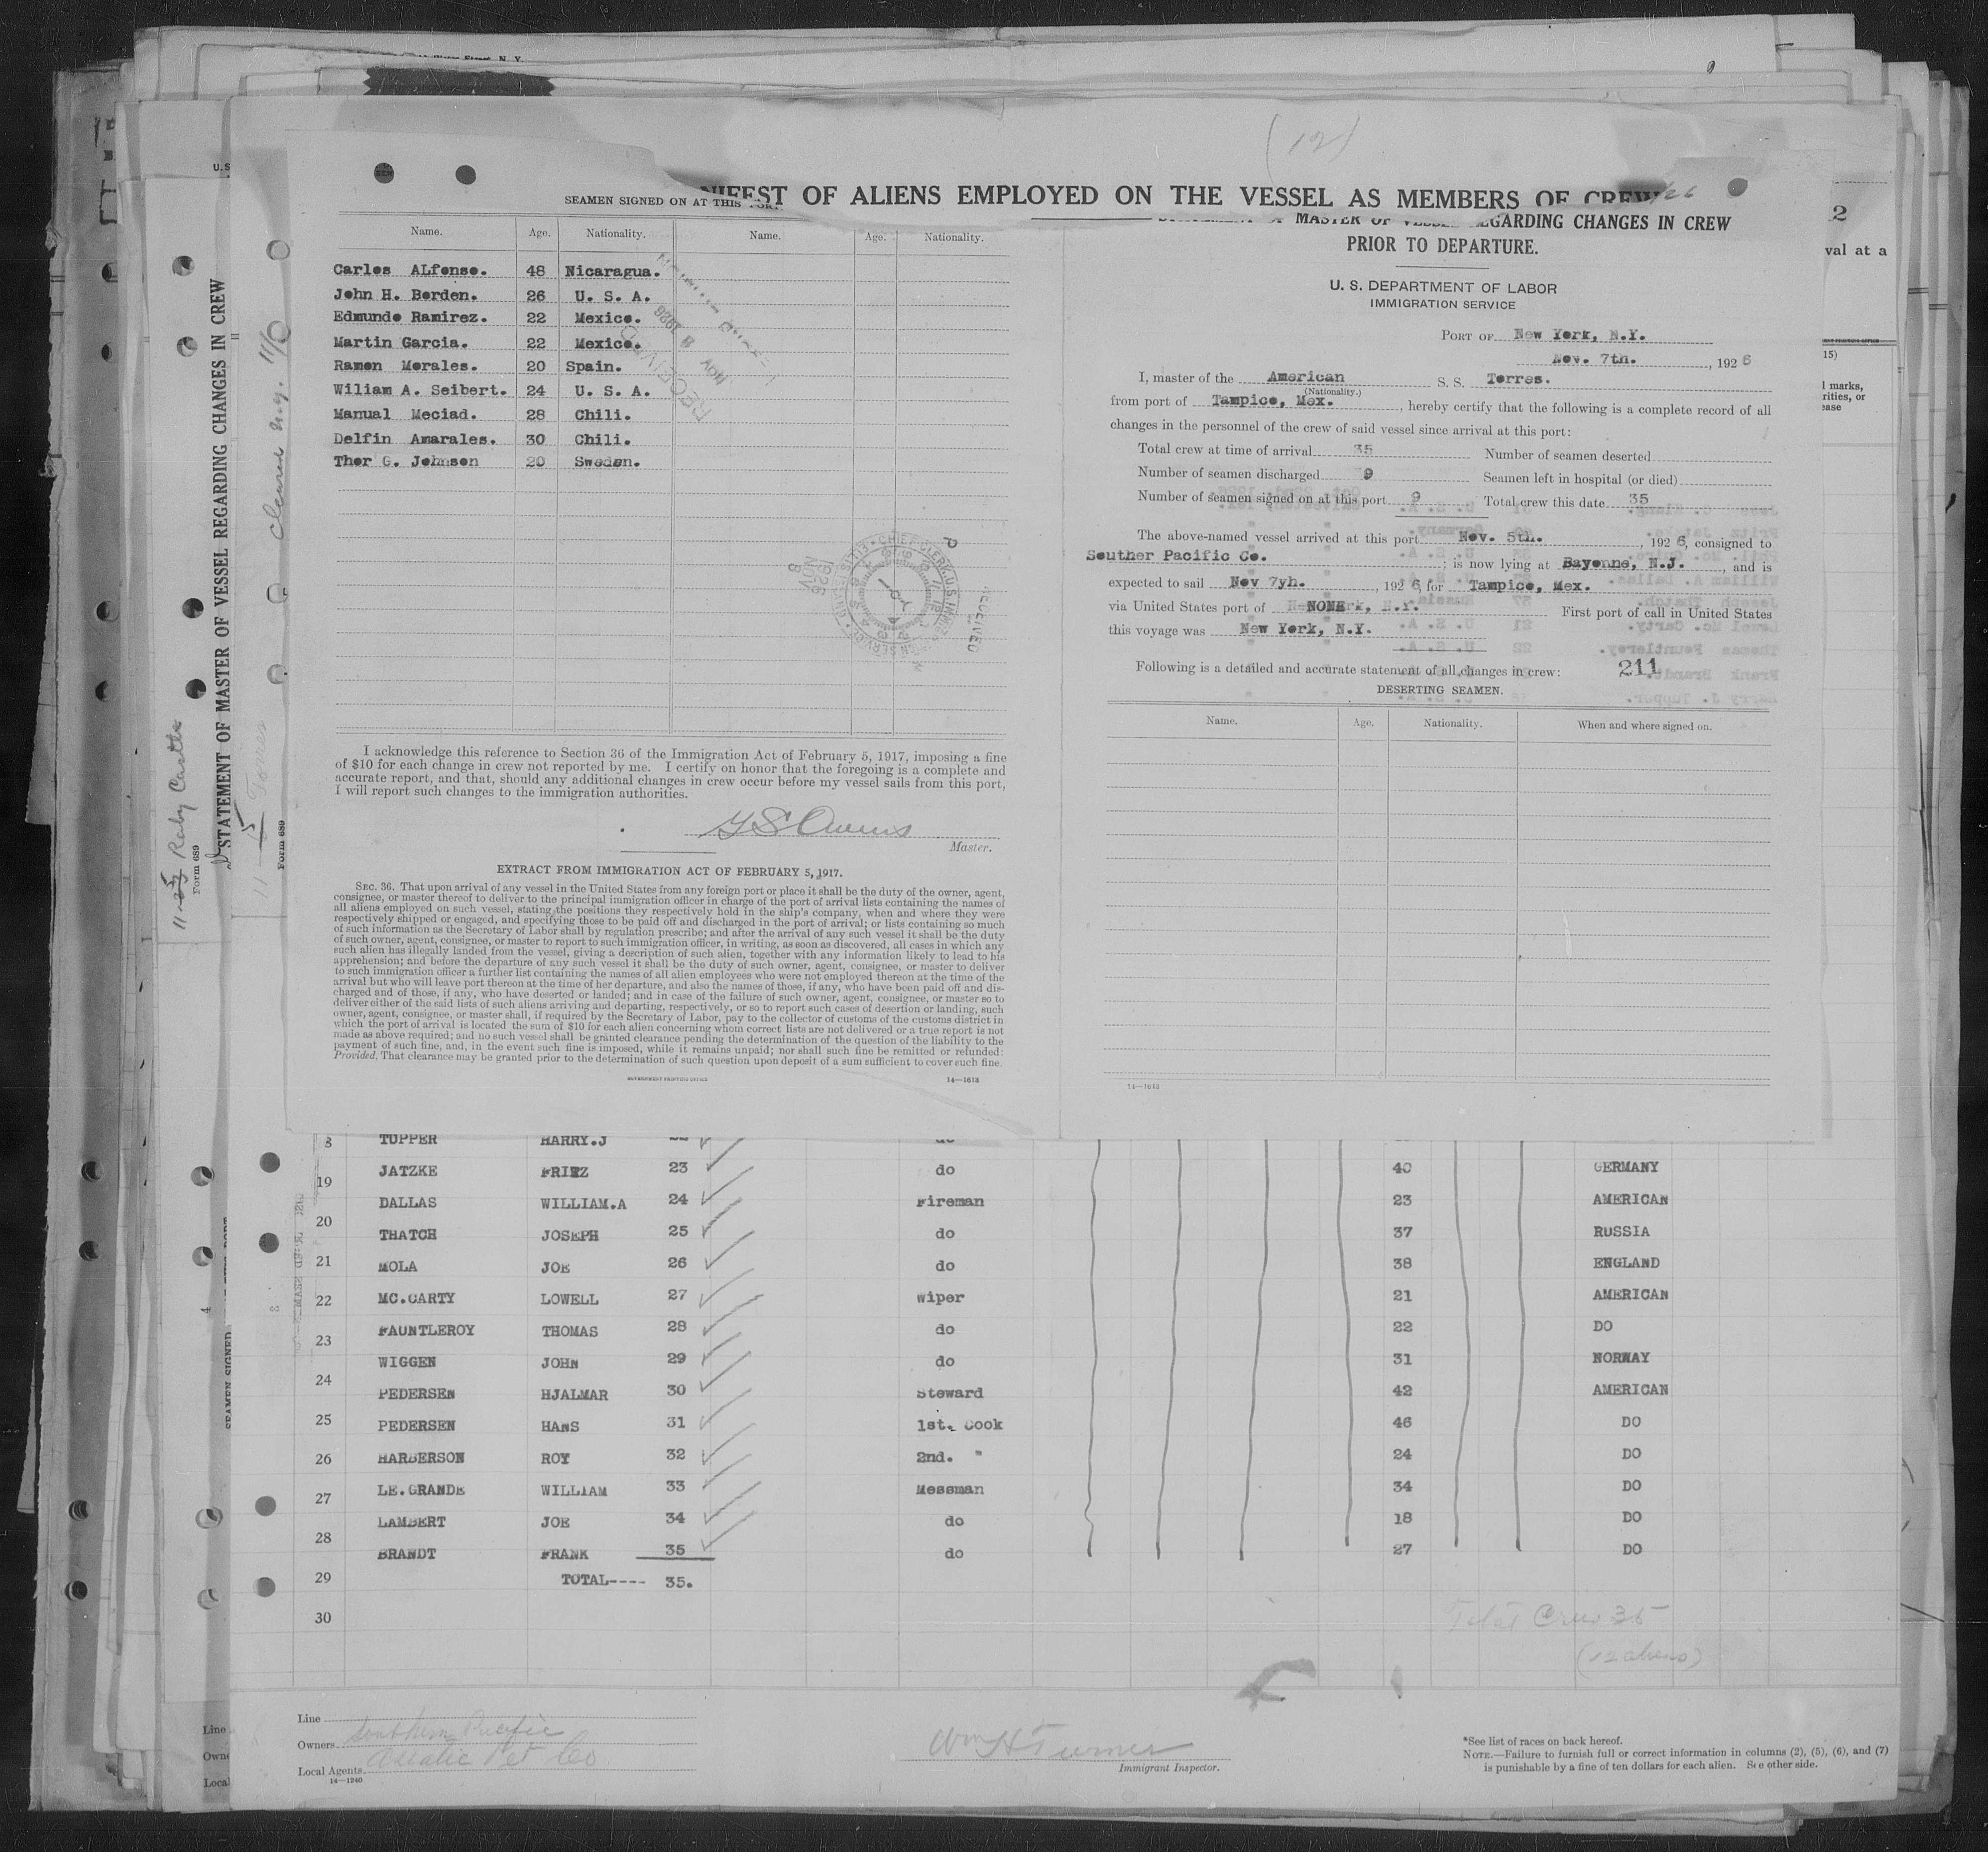 (12)
NIFEST OF ALIENS EMPLOYED ON THE VESSEL AS MEMBERS OF CREW
SEAMEN SIGNED ON AT THIS PORT.
Name. Age. Nationality. Name. Age. Nationality.
Carlos ALfonso. 48 Nicaragua.
John H. Borden. 26 U. S. A.
Edmundo Ramirez. 22 Mexico.
Martin Garcia. 22 Mexico.
Ramon Morales. 20 Spain.
Wiliam A. Seibert. 24 U. S. A.
Manual Meciad. 28 Chili.
Delfin Amarales. 30 Chili.
Thor G. Johnson 20 Sweden.
RECEIVED
NOV 8 1926
I acknowledge this reference to Section 36 of the Immigration Act of February 5, 1917, imposing a fine
of $10 for each change in crew not reported by me. I certify on honor that the foregoing is a complete and
accurate report, and that, should any additional changes in crew occur before my vessel sails from this port,
I will report such changes to the immigration authorities.
Owens
Master.
EXTRACT FROM IMMIGRATION ACT OF FEBRUARY 5, 1917.
SEC. 36. That upon arrival of any vessel in the United States from any foreign port or place it shall be the duty of the owner, agent,
consignee, or master thereof to deliver to the principal immigration officer in charge of the port of arrival lists containing the names of
all aliens employed on such vessel, stating the positions they respectively hold in the ship's company, when and where they were
respectively shipped or engaged, and specifying those to be paid off and discharged in the port of arrival; or lists containing so much
of such information as the Secretary of Labor shall by regulation prescribe; and after the arrival of any such vessel it shall be the duty
of such owner, agent, consignee, or master to report to such immigration officer, in writing, as soon as discovered, all cases in which any
such alien has illegally landed from the vessel, giving a description of such alien, together with any information likely to lead to his
apprehension; and before the departure of any such vessel it shall be the duty of such owner, agent, consignee, or master to deliver
to such immigration officer a further list containing the names of all alien employees who were not employed thereon at the time of the
arrival but who will leave port thereon at the time of her departure, and also the names of those, if any, who have been paid off and dis-
charged and of those, if any, who have deserted or landed; and in case of the failure of such owner, agent, consignee, or master so to
deliver either of the said lists of such aliens arriving and departing, respectively, or so to report such cases of desertion or landing, such
owner, agent, consignee, or master shall, if required by the Secretary of Labor, pay to the collector of customs of the customs district in
which the port of arrival is located the sum of $10 for each alien concerning whom correct lists are not delivered or a true report is not
made as above required; and no such vessel shall be granted clearance pending the determination of the question of the liability to the
payment of such fine, and, in the event such fine is imposed, while it remains unpaid; nor shall such fine be remitted or refunded:
Provided, That clearance may be granted prior to the determination of such question upon deposit of a sum sufficient to cover such fine.
GOVERNMENT PRINTING OFFICE 14—1613
MASTER OF VESSEL REGARDING CHANGES IN CREW
PRIOR TO DEPARTURE.
U. S. DEPARTMENT OF LABOR
IMMIGRATION SERVICE
PORT OF New York, N.Y.
Nov. 7th., 1926
I, master of the American S. S. Torres.
(Nationality.)
from port of Tampico, Mex., hereby certify that the following is a complete record of all
changes in the personnel of the crew of said vessel since arrival at this port:
Total crew at time of arrival 35 Number of seamen deserted
Number of seamen discharged 9 Seamen left in hospital (or died)
Number of seamen signed on at this port 9 Total crew this date 35
The above-named vessel arrived at this port Nov. 5th., 1926, consigned to
Souther Pacific Co.; is now lying at Bayonne, N.J., and is
expected to sail Nov 7yh., 1926, for Tampico, Mex.
via United States port of NONE First port of call in United States
this voyage was New York, N.Y.
Following is a detailed and accurate statement of all changes in crew: 211
DESERTING SEAMEN.
Name. Age. Nationality. When and where signed on.
14—1613
STATEMENT OF MASTER OF VESSEL REGARDING CHANGES IN CREW
Form 689
11-5 Torres
Form 689
2
val at a
15)
l marks,
rities, or
ease
8 TUPPER HARRY.J do
19 JATZKE FRITZ 23 do 40 GERMANY
DALLAS WILLIAM.A 24 Fireman 23 AMERICAN
20 THATCH JOSEPH 25 do 37 RUSSIA
21 MOLA JOE 26 do 38 ENGLAND
22 MC.CARTY LOWELL 27 Wiper 21 AMERICAN
23 FAUNTLEROY THOMAS 28 do 22 DO
WIGGEN JOHN 29 do 31 NORWAY
24 PEDERSEN HJALMAR 30 Steward 42 AMERICAN
25 PEDERSEN HANS 31 1st. Cook 46 DO
26 HARBERSON ROY 32 2nd. " 24 DO
27 LE.GRANDE WILLIAM 33 Messman 34 DO
28 LAMBERT JOE 34 do 18 DO
BRANDT FRANK 35 do 27 DO
29 TOTAL---- 35.
30
Total Crew 35
(12 aliens)
Line
Owners Southern Pacific
Local Agents Asiatic Pet Co
14—1240
Wm H Turner
Immigrant Inspector.
*See list of races on back hereof.
NOTE.—Failure to furnish full or correct information in columns (2), (5), (6), and (7)
is punishable by a fine of ten dollars for each alien. See other side.